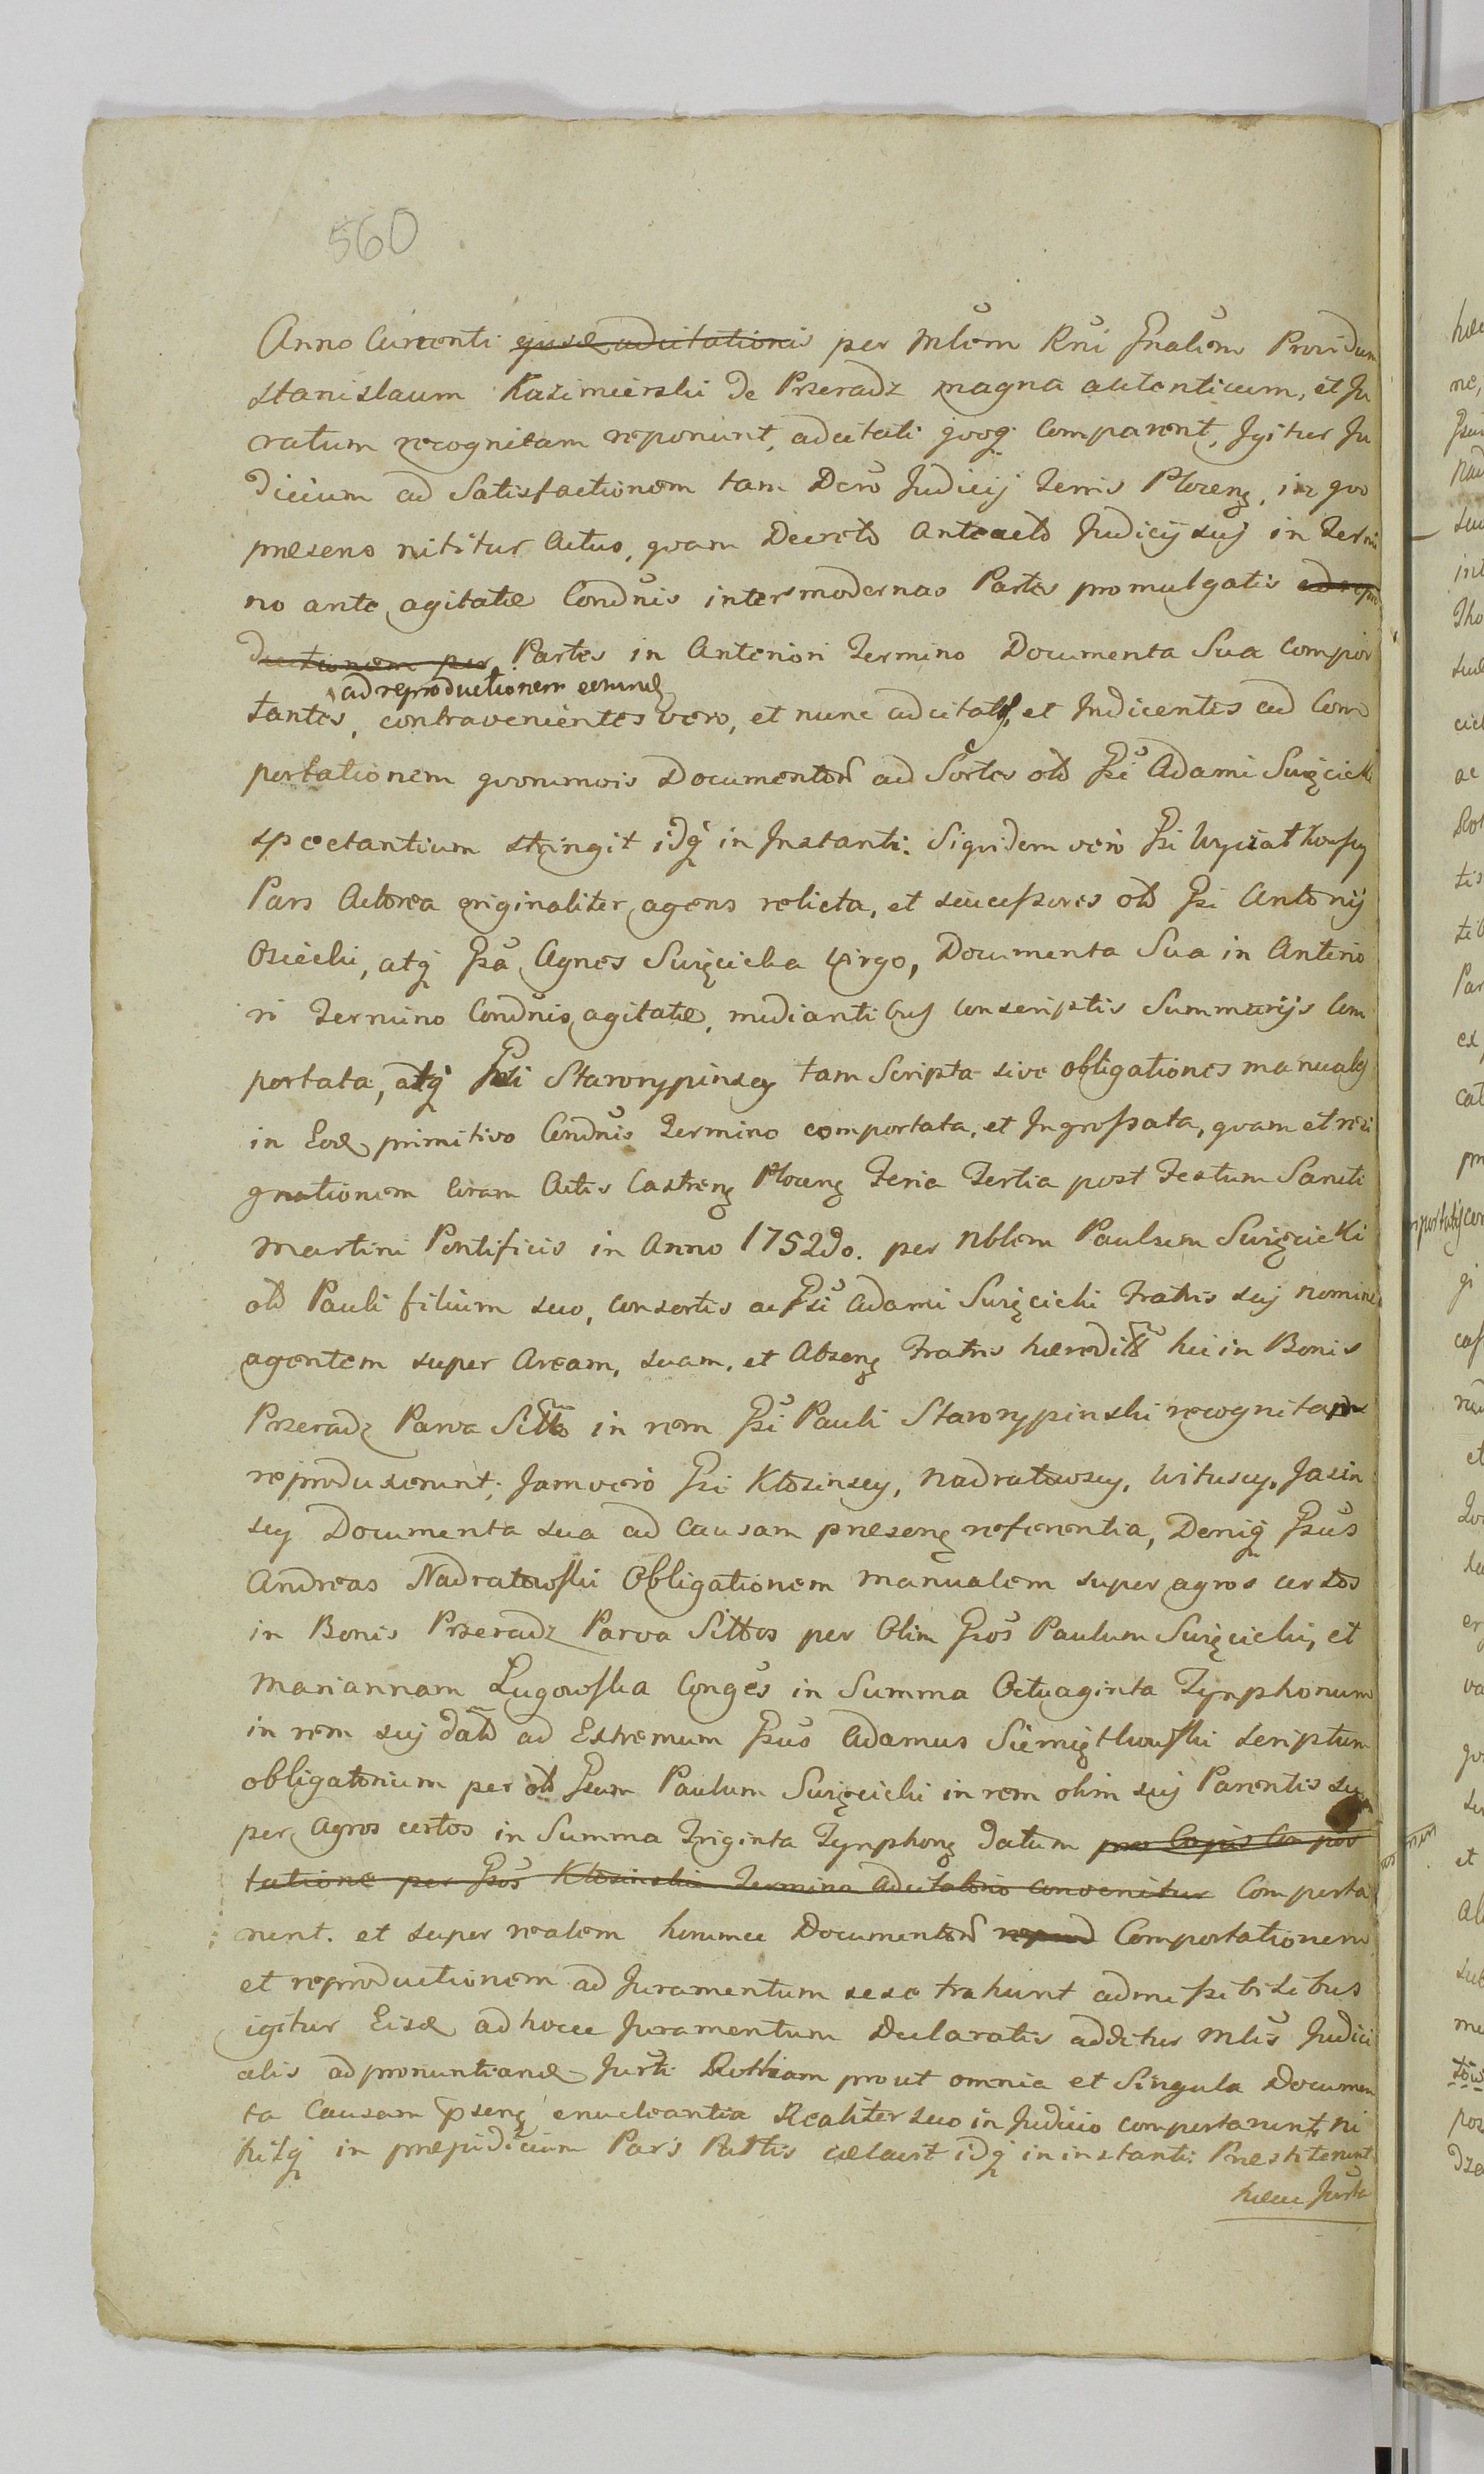 560
Anno Currenti ejusd adcitationis per Mlem Rni Gnalem Providum
Stanislaum Kazimierski de Przeradz magna autenticum, et Ju
ratum recognitam reponunt, adcitati qvoq Comparent, Igitur Ju
dicium ad Satisfactionem tam Dcro Judicij Terris Plocens, in qvo
præsens nititur Actus, qvam Decreto Anteacto Judicij suj in Termi
no ante agitatæ Condnis inter modernas Partes promulgatis
ductionem per Partes in Anteriori Termino Documenta Sua Compor
ad reproductionem eorund
tantes, contravenientes vero, et nunc adcitatos, et Indicentes ad Com
portationem qvorumvis Documentor ad Sortes olo Gsi Adami Swięcicki
spectantium stringit idq in Instanti. Siqvidem vero Gsi
Pars Actorea originaliter agens relicta, et successores olo Gsi Antonij
Osiecki, atq Gsa Agnes Swięcicka Virgo, Documenta Sua in Anterio
ri Termino Condnis agitatæ, mediantibus conscriptis Summarijs Com
portata, atq Gsi Starorypinscy tam Scripta sive obligationes manuales
in Eod primitivo Condnis Termino comportata, et Ingrossata, qvam et resi
gnationem Coram Actis Castrens Plocens Feria Tertia post Festum Sancti
Martini Pontificis in Anno 1752do. per Nblem Paulum Swięcicki
olo Pauli filium suo, consortis ac Gsi Adami Swięcicki Fratris suj nomine
agentem super Aream, suam, et Absens Fratris hæredit hic in Bonis
Przeradz Parva Sitto in rem Gsi Pauli Starorypinski recognitam
reproduxerunt; Jam vero Gsi Kłosinscy, Nadratowscy, Wituscy, Jasin
scy Documenta sua ad Causam præsens referentia, Deniq Gsus
Andreas Nadratowski Obligationem manualem super agros certos
in Bonis Przeradz Parva Sittos per Olim Gsos Paulum Swięcicki, et
Mariannam Ługowska Conges in Summa Octuaginta Tynphonum
in rem suj dato ad Extremum Gsus Adamus Siemiątkowski scriptum
obligatorium per olo Gsum Paulum Swięcicki in rem olim suj Parentis su
per Agros certos in Summa Triginta Tynphons datum pro Cujus Compor
tatione per Gsos Kłosinskie Termino Adcitatorio convenitur Comporta
runt. et super realem horumce Documentor Comportationem
et reproductionem ad Juramentum sese trahunt admissibilibus
igitur Eisd ad hocce Juramentum Declaratis additur Mlis Judici
alis ad pronuntiand Jurti Rottham prout omnia et Singula Documen
ta Causam psens enucleantia Realiter suo in Judicio comportarunt, ni
hilq in præjudicium Pars Partis celavit idq in instanti Præstiterunt
hæcce Jurta